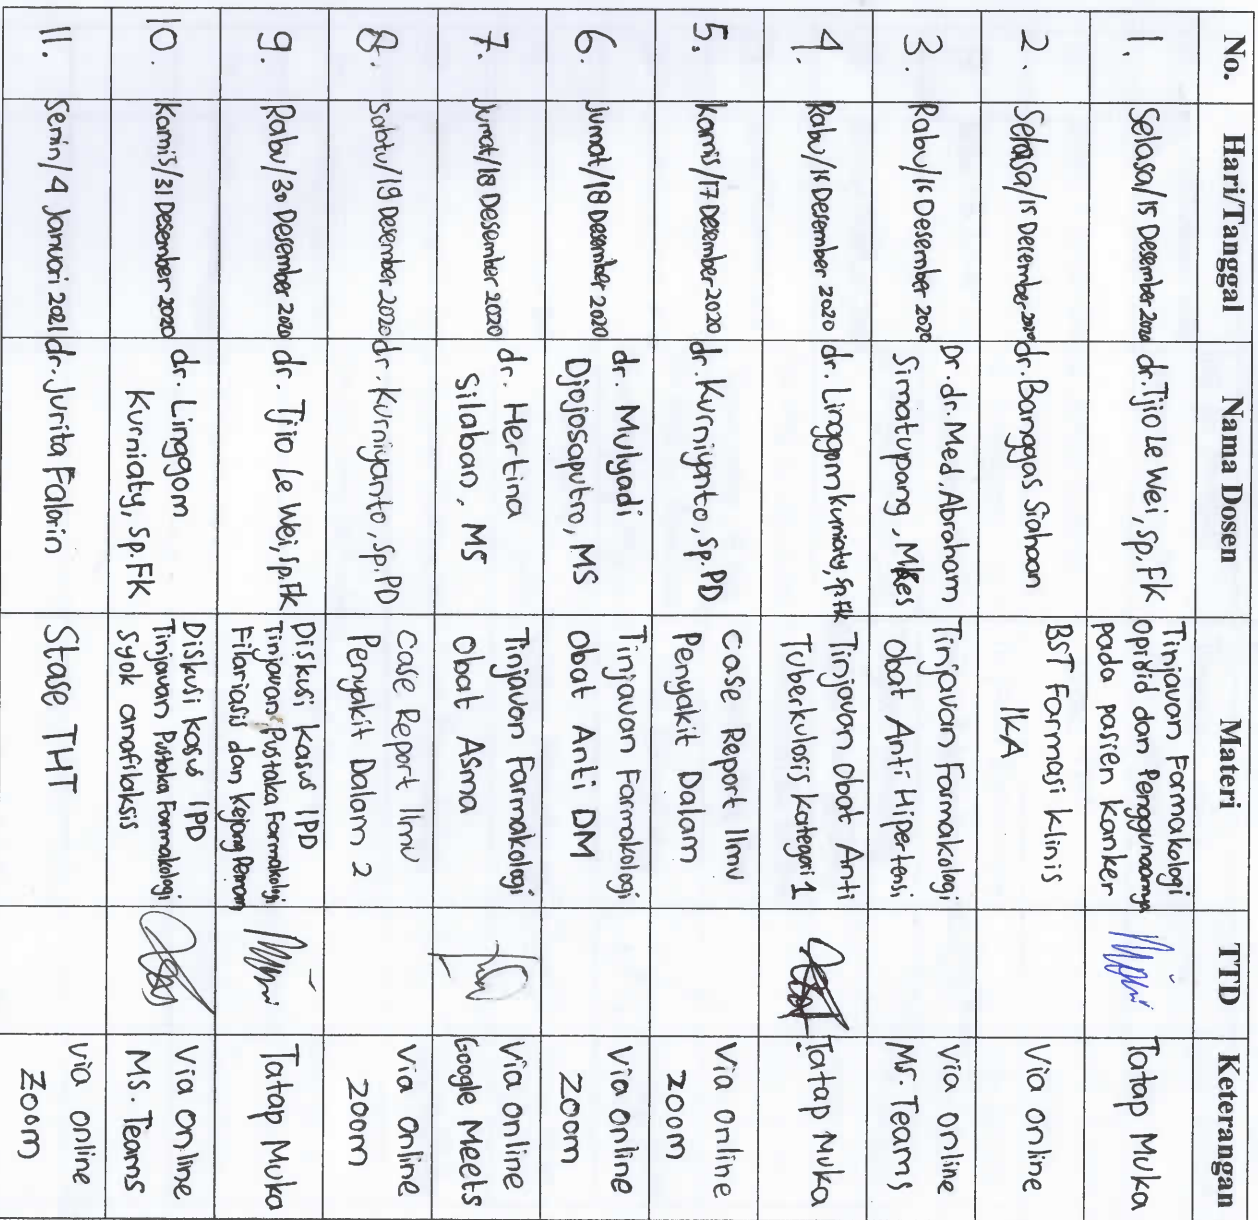 No. Hari/Tanggal Nama Dosen Materi TTD Keterangan
1. Selasa/15 Desember 2020 dr. Tjio Le Wei, Sp.FK Tinjauan Farmakologi
Opioid dan Penggunaannya
pada pasien kanker Tatap Muka
2. Selasa/15 Desember 2020 dr. Banggas Siahaan BST Farmasi Klinis
IKA Via online
3. Rabu/16 Desember 2020 Dr. dr. Med. Abraham
Simatupang, MKes Tinjauan Farmakologi
Obat Anti Hipertensi Via online
MS. Teams
4. Rabu/16 Desember 2020 dr. Linggom Kurniaty, Sp.FK Tinjauan Obat Anti
Tuberkulosis Kategori 1 Tatap Muka
5. Kamis/17 Desember 2020 dr. Kurniyanto, Sp.PD Case Report Ilmu
Penyakit Dalam Via online
Zoom
6. Jumat/18 Desember 2020 dr. Mulyadi
Djojosaputro, MS Tinjauan Farmakologi
Obat Anti DM Via online
Zoom
7. Jumat/18 Desember 2020 dr. Hertina
Silaban, MS Tinjauan Farmakologi
Obat Asma Via online
Google Meets
8. Sabtu/19 Desember 2020 dr. Kurniyanto, Sp.PD Case Report Ilmu
Penyakit Dalam 2 Via online
Zoom
9. Rabu/30 Desember 2020 dr. Tjio Le Wei, Sp.FK Diskusi kasus IPD
Tinjauan Pustaka Farmakologi
Filariasis dan Kejang Demam Tatap Muka
10. Kamis/31 Desember 2020 dr. Linggom
Kurniaty, Sp.FK Diskusi kasus IPD
Tinjauan Pustaka Farmakologi
Syok anafilaksis Via online
MS. Teams
11. Senin/4 Januari 2021 dr. Jurita Falorin Stase THT Via online
Zoom